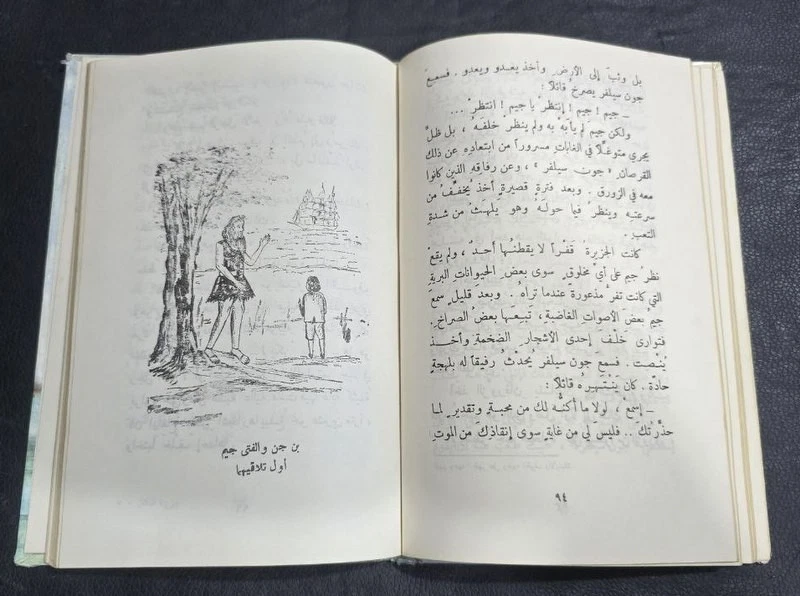 بل وثبَ إلى الأرضِ وأخذ يعدو ويعدو . فسمعَ
جون سيلفر يصرخُ قائلاً :
ـ جيم ! جيم ! إنتظرْ يا جيم ! انتظرْ ...
ولكن جيمَ لم يأبَهْ به ولم ينظرْ خلفَهُ ، بل ظلَّ
يجري متوغلاً في الغاباتِ مسروراً من ابتعادِهِ عن ذلك
القرصانِ « جون سيلفر » ، وعن رفاقِه الذين كانوا
معه في الزورق . وبعد فترةٍ قصيرةٍ أخذ يُخفّفُ من
سرعتِه وينظرُ فيما حولَهُ وهو يلهثُ من شدةِ
التعبِ .
كانت الجزيرةُ قفراً لا يقطنُها أحدٌ ، ولم يقعْ
نظرُ جيم على أيِّ مخلوقٍ سوى بعضِ الحيواناتِ البريةِ
التي كانت تفرُّ مذعورةً عندما تراهُ . وبعد قليلٍ سمعَ
جيمُ بعضَ الأصواتِ الغاضبةِ ، تبِعَها بعضُ الصراخِ .
فتوارى خلفَ إحدى الأشجارِ الضخمةِ وأخذ
يُنْصت . فسمعَ جون سيلفر يُحدّثُ رفيقاً له بلهجةٍ
حادّة . كان يَنْتَهِرُهُ قائلاً :
ـ إسمعْ ، لولا ما أكنُّه لك من محبةٍ وتقديرٍ لما
حذّرْتُكَ .. فليسَ لي من غايةٍ سوى إنقاذِكَ من الموتِ
٩٤
بن جن والفتى جيم
أول تلاقيهما